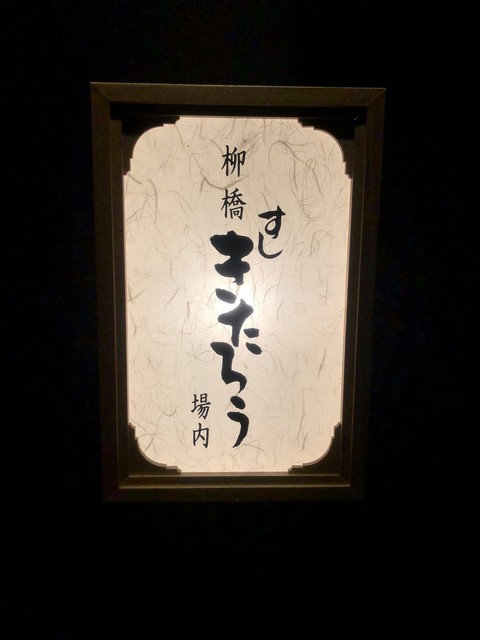 すし
柳橋
きたろう
場内